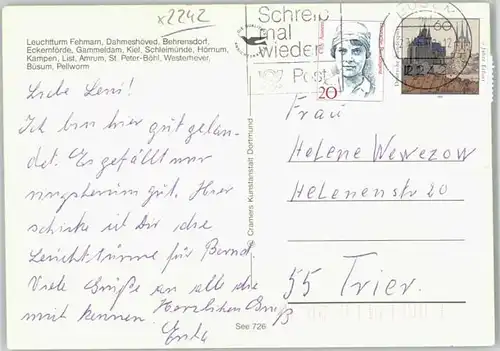 x2242
Leuchtturm Fehmarn, Dahmeshöved, Behrensdorf,
Eckernförde, Gammeldam, Kiel, Schleimünde, Hörnum,
Kampen, List, Amrum, St. Peter-Böhl, Westerhever,
Büsum, Pellworm
Liebe Leni!
Ich bin hier gut gelan-
det. Es gefällt mir
ringsherum gut. Hier
schicke ich Dir die
Leuchttürme für Bernd.
Viele Grüße an alle die
mich kennen. Herzlichen Gruß
See 726
Cramers Kunstanstalt Dortmund
Schreib
mal
wieder
Post
20
60
Frau
Helene Wewezow
Helenenstr 20
55 Trier.